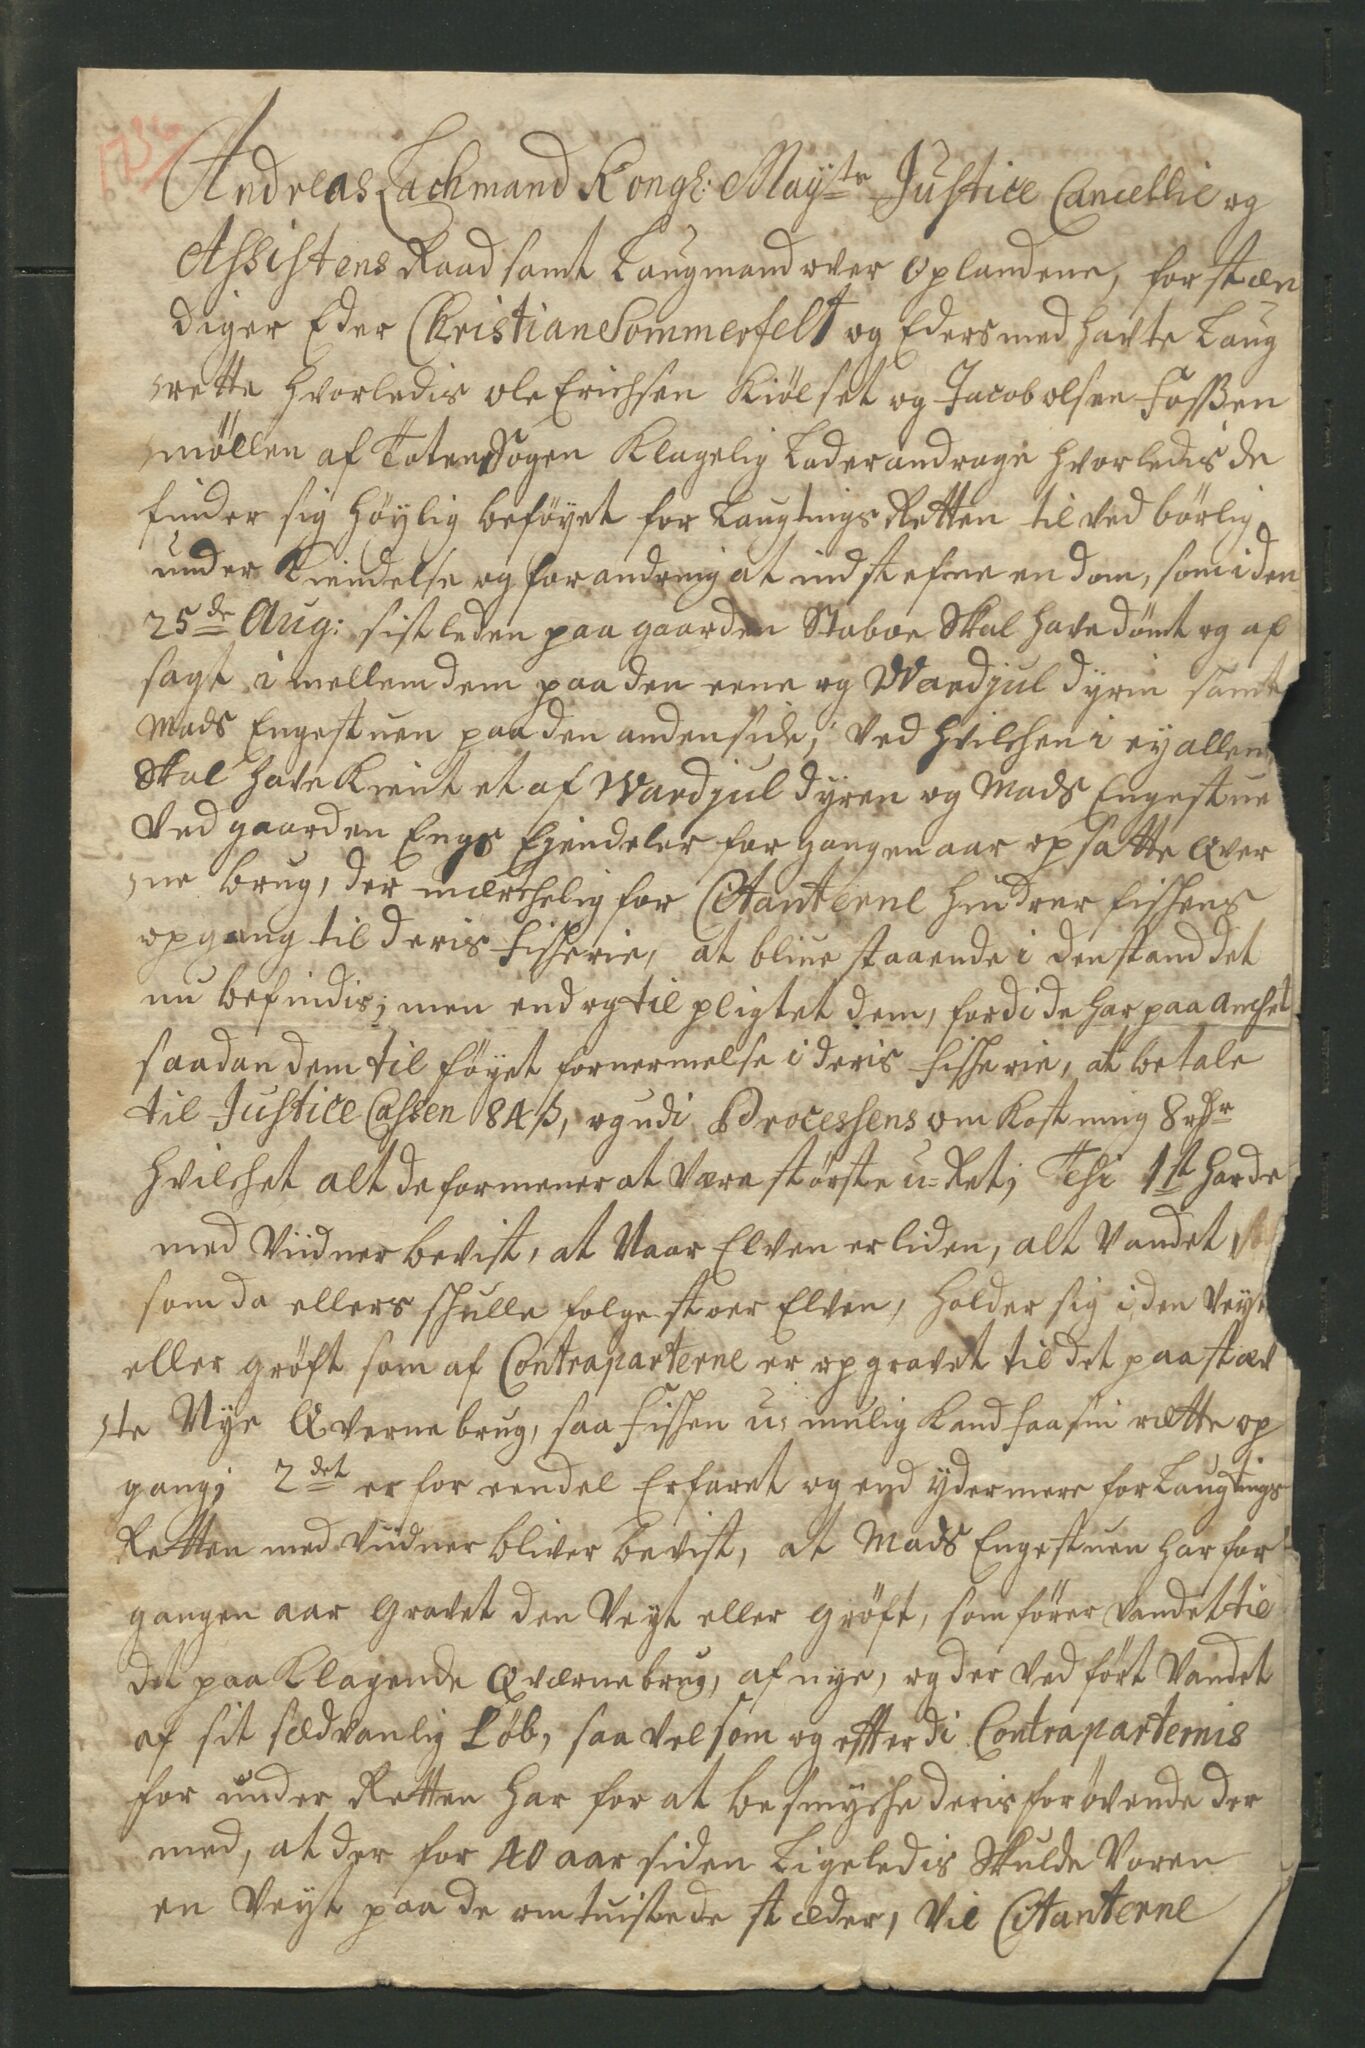 1736
Andreas Lachmand Kongl: Mayts Justice Cancellie og
Assistens Raad samt Laugmand over Oplandene, forstæn
diger Eder Christian Sommerfelt og Eders med hafte Laug
rette hvorledis Ole Erichsen Kiölset og Jacob Olsen Fossen
möllen af Toten Sogen Klagelig Lader andrage hvorledis de
finder sig höylig beföyet for Laugtings Retten til ved börlig
under Kiendelse og forandring at indstefne en dom, som i den
25de Aug: sistleden paa gaarden Staboe Skal have dömt og af
sagt i mellem dem paa den eene og Wardjul dyrin samt
Mads Engestuen paa den anden side, ved hvilchen i ey allen
Skal have Kient et af Wardjul dyren og Mads Engestue
ved gaarden Engs Ejendeler forgangen aar opsatte Qver
ne brug, der mærchelig for Citanterne hindrer fischens
opgang til deris fischerie, at blive staaende i den stand det
nu befindis; men end og til pligtet dem, fordi de har paa anchet
saadan dem til föyet fornermelse i deris fischerie, at betale
til Justice Cassen 84 s, og udi Processens omkostning 8 rdr
hvilchet alt de formener at være störste u-Ret; Thi 1st har de
med Viidner bevist, at Naar Elven er liden, alt vandet
som da ellers schulle folge stoer Elven, holder sig i den veyt
eller gröft som af Contraparterne er opgravet til det paastæv
te Nye Qvernebrug, saa fischen u-mulig kand faa sin rette op
gang; 2det er for eendel Erfaret og end ydermere for Laugtings
Retten med Viidner bliver bevist, at Mads Engestuen har for
gangen aar gravet den veyt eller gröft, som förer vandet til
det paa Klagende Qværnebrug, af nye, og der ved fört vandet
af sit sædvanlig Löb, saavelsom og efterdi Contraparternis
for under Retten har for at besmyche deris forövende der
med, at der for 40 aar siden Ligeledis Skulde Voren
en veyt paa de omtuistede stæder, vil Citanterne